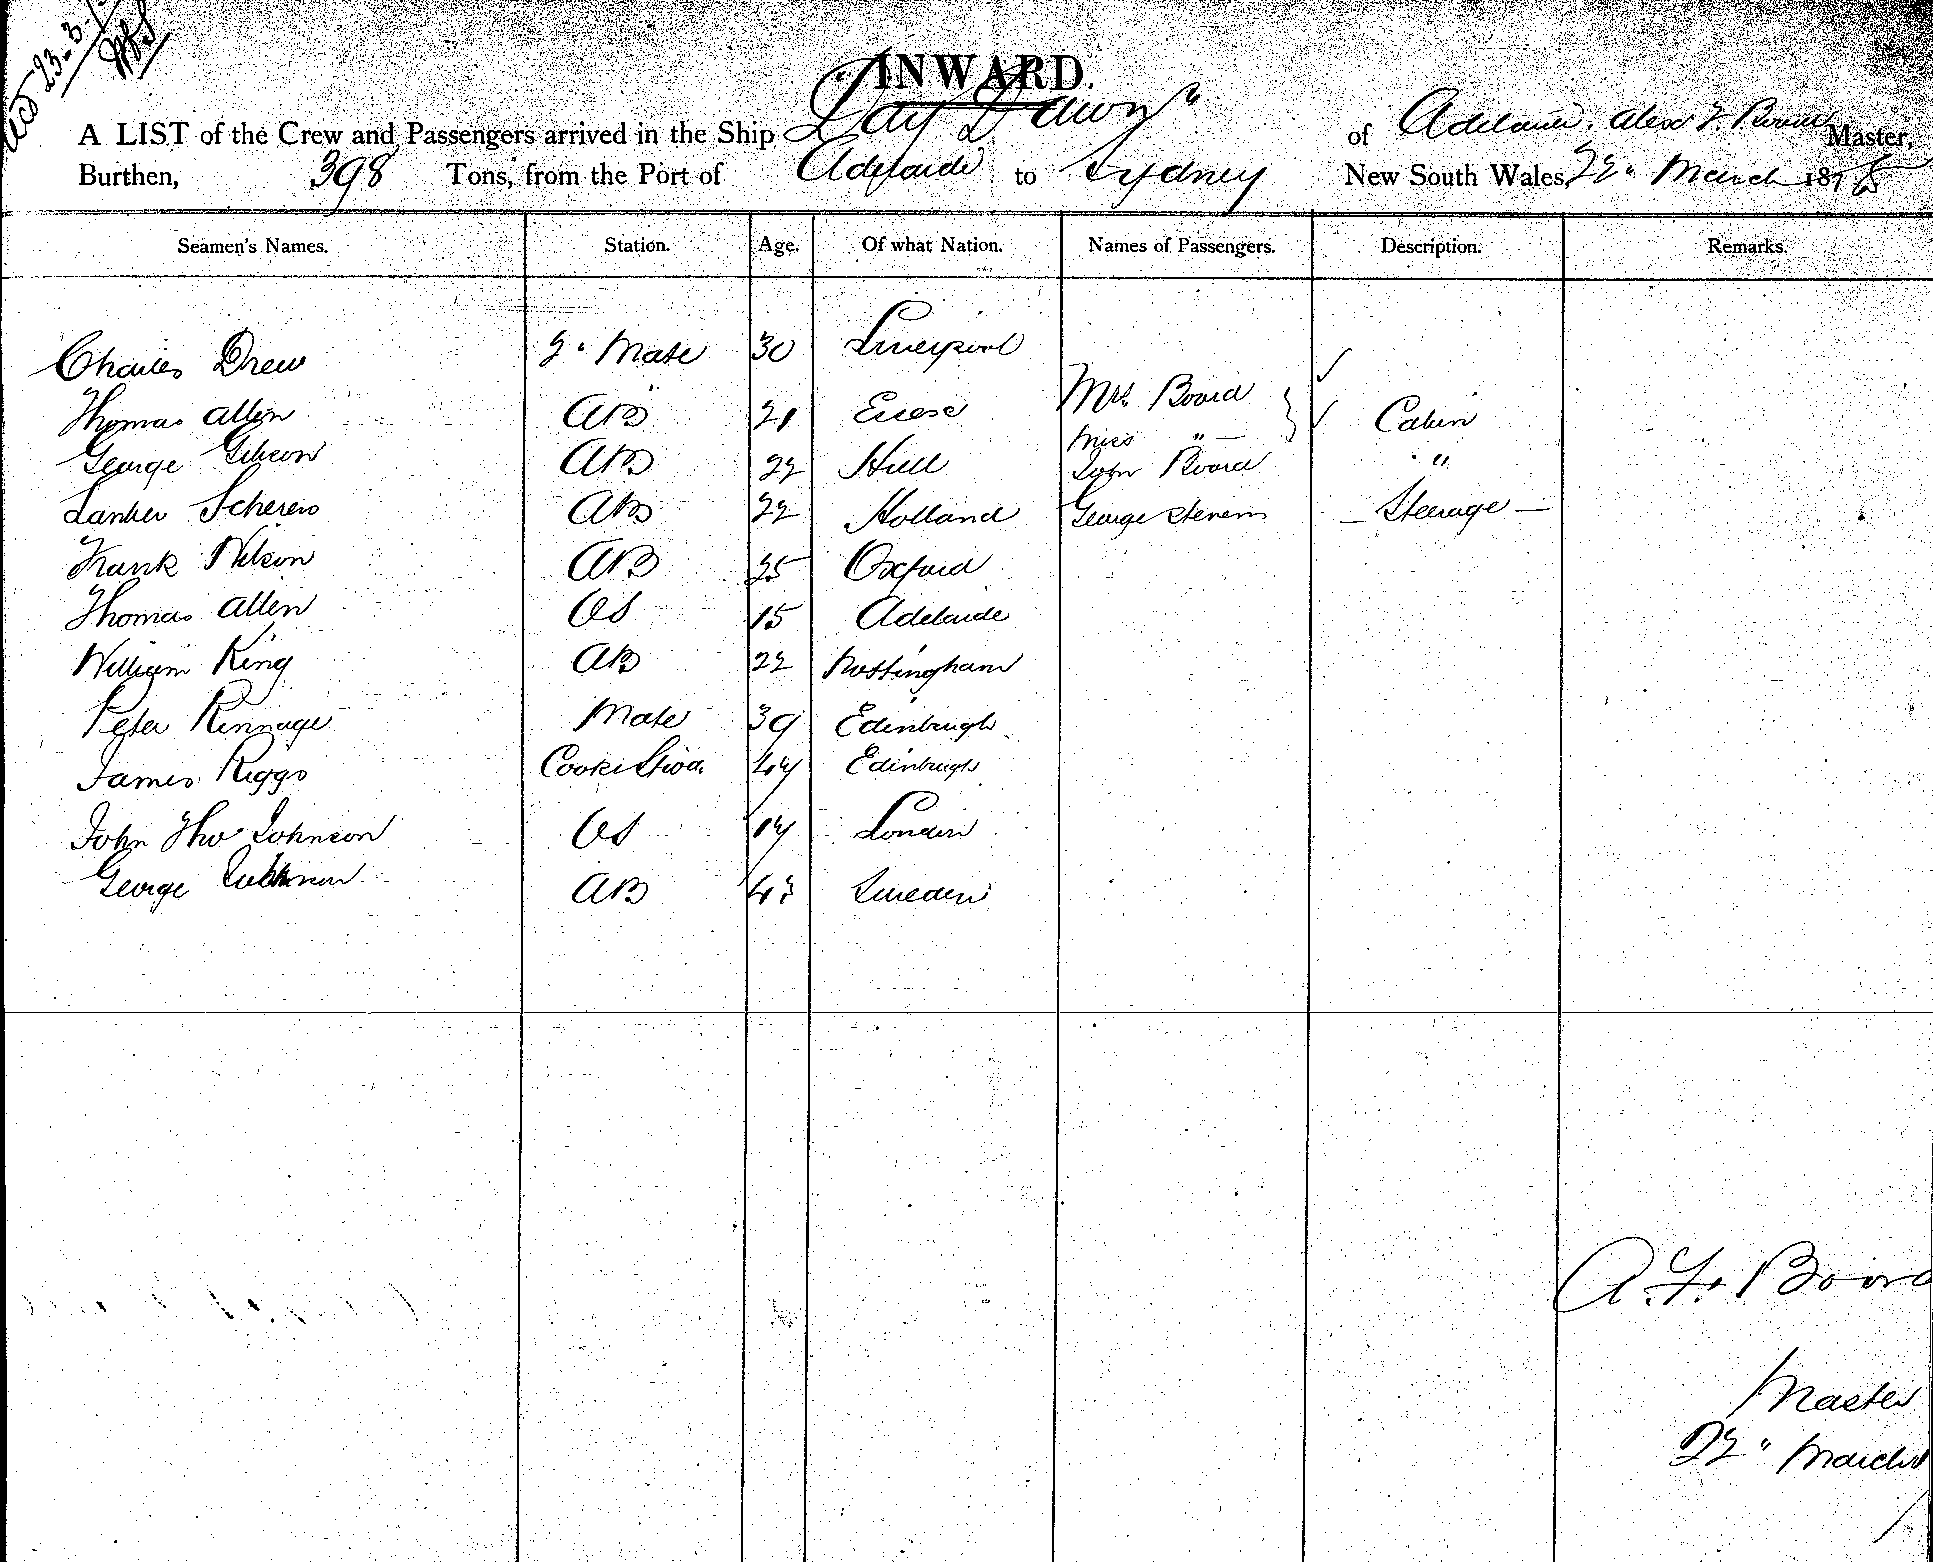 23-3-
INWARD.
A LIST of the Crew and Passengers arrived in the Ship "Day Dawn" of Adelaide, Alexr F. Boord Master,
Burthen, 398 Tons, from the Port of Adelaide to Sydney New South Wales, 22" March 187
Seamen's Names. Station. Age. Of what Nation. Names of Passengers. Description. Remarks.
Charles Drew 2" Mate 30 Liverpool
Mrs. Boord
Thomas Allen AB 21 Essex Cabin
Miss "
George Gibson AB 22 Hull John Boord "
Scherers AB 22 Holland George Stevens - Steerage -
Frank Wilson AB 25 Oxford
Thomas Allen OS 15 Adelaide
William King AB 22 Nottingham
Peter Mate 39 Edinburgh
James Riggs Cook & Stwd. 44 Edinburgh
John Tho Johnson OS London
George AB Sweden
A. F. Boord
Master
22" March